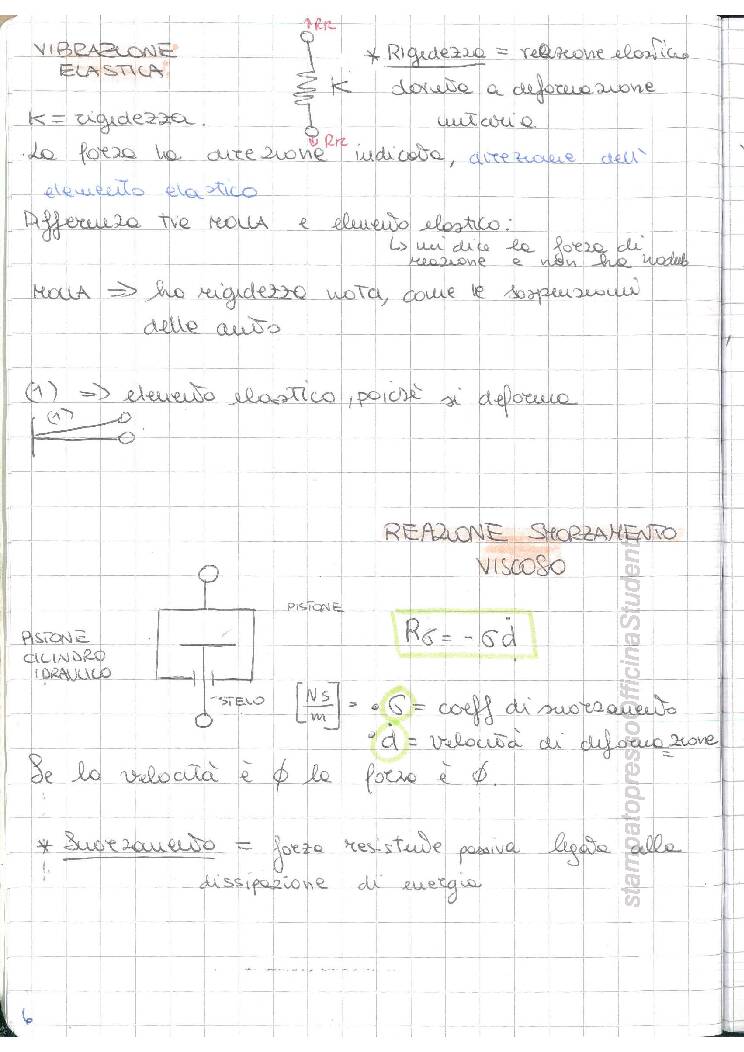 VIBRAZIONE
ELASTICA
↑Rk
K
↓Rk
* Rigidezza = relazione elastica
dovuta a deformazione
unitaria
K = rigidezza.
La forza ha direzione indicata, direzione dell'
elemento elastico
Differenza tra MOLLA e elemento elastico:
↳ mi dice la forza di
reazione e non ha massa
MOLLA => ho rigidezza nota, come le sospensioni
delle auto
(1) => elemento elastico, poichè si deforma
(1)
REAZIONE SMORZAMENTO
VISCOSO
PISTONE
CILINDRO
IDRAULICO
PISTONE
STELO
Rσ = - σ ḋ
[Ns/m] = • σ = coeff di smorzamento
• ḋ = velocità di deformazione
Se la velocità è ϕ la forza è ϕ.
* Smorzamento = forza resistente passiva legata alla
dissipazione di energia
stampatopressoOfficinaStudenti
6